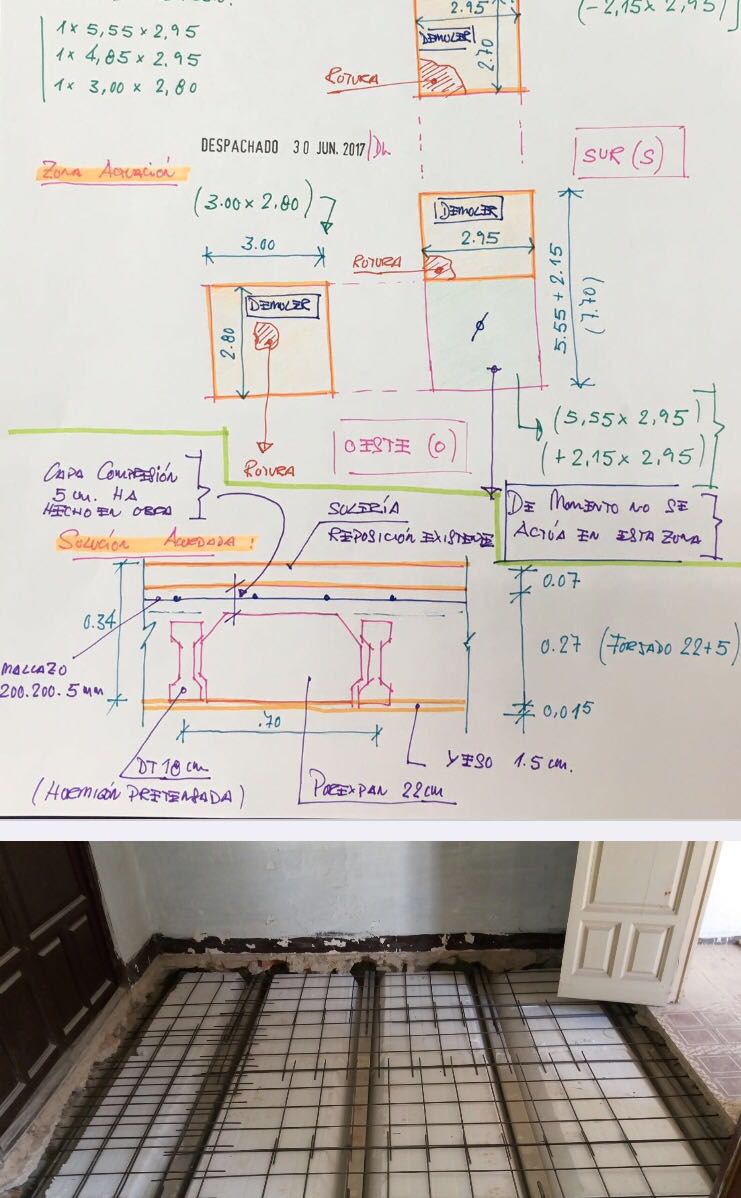 1x 5,55 x 2,95
1x 4,85 x 2.95
1x 3,00 x 2,80
2.95
(-2,15 x 2,95)
DEMOLER
2.70
ROTURA
DESPACHADO 30 JUN. 2017
SUR (S)
ZONA ACTUACIÓN
(3.00 x 2.80)
3.00
DEMOLER
2.95
ROTURA
5.55 + 2.15
(7.70)
DEMOLER
2.80
ROTURA
OESTE (O)
(5,55 x 2,95)
(+2,15 x 2,95)
CAPA COMPRESIÓN
5 cm. HA
HECHO EN OBRA
SOLERÍA
REPOSICIÓN EXISTENTE
DE MOMENTO NO SE
ACTÚA EN ESTA ZONA
SOLUCIÓN ACORDADA:
0.07
0.34
0.27 (FORJADO 22+5)
MALLAZO
200.200.5 mm
0,015
.70
YESO 1.5 cm.
DT 18 cm
(HORMIGÓN PRETENSADA)
POREXPAN 22 cm